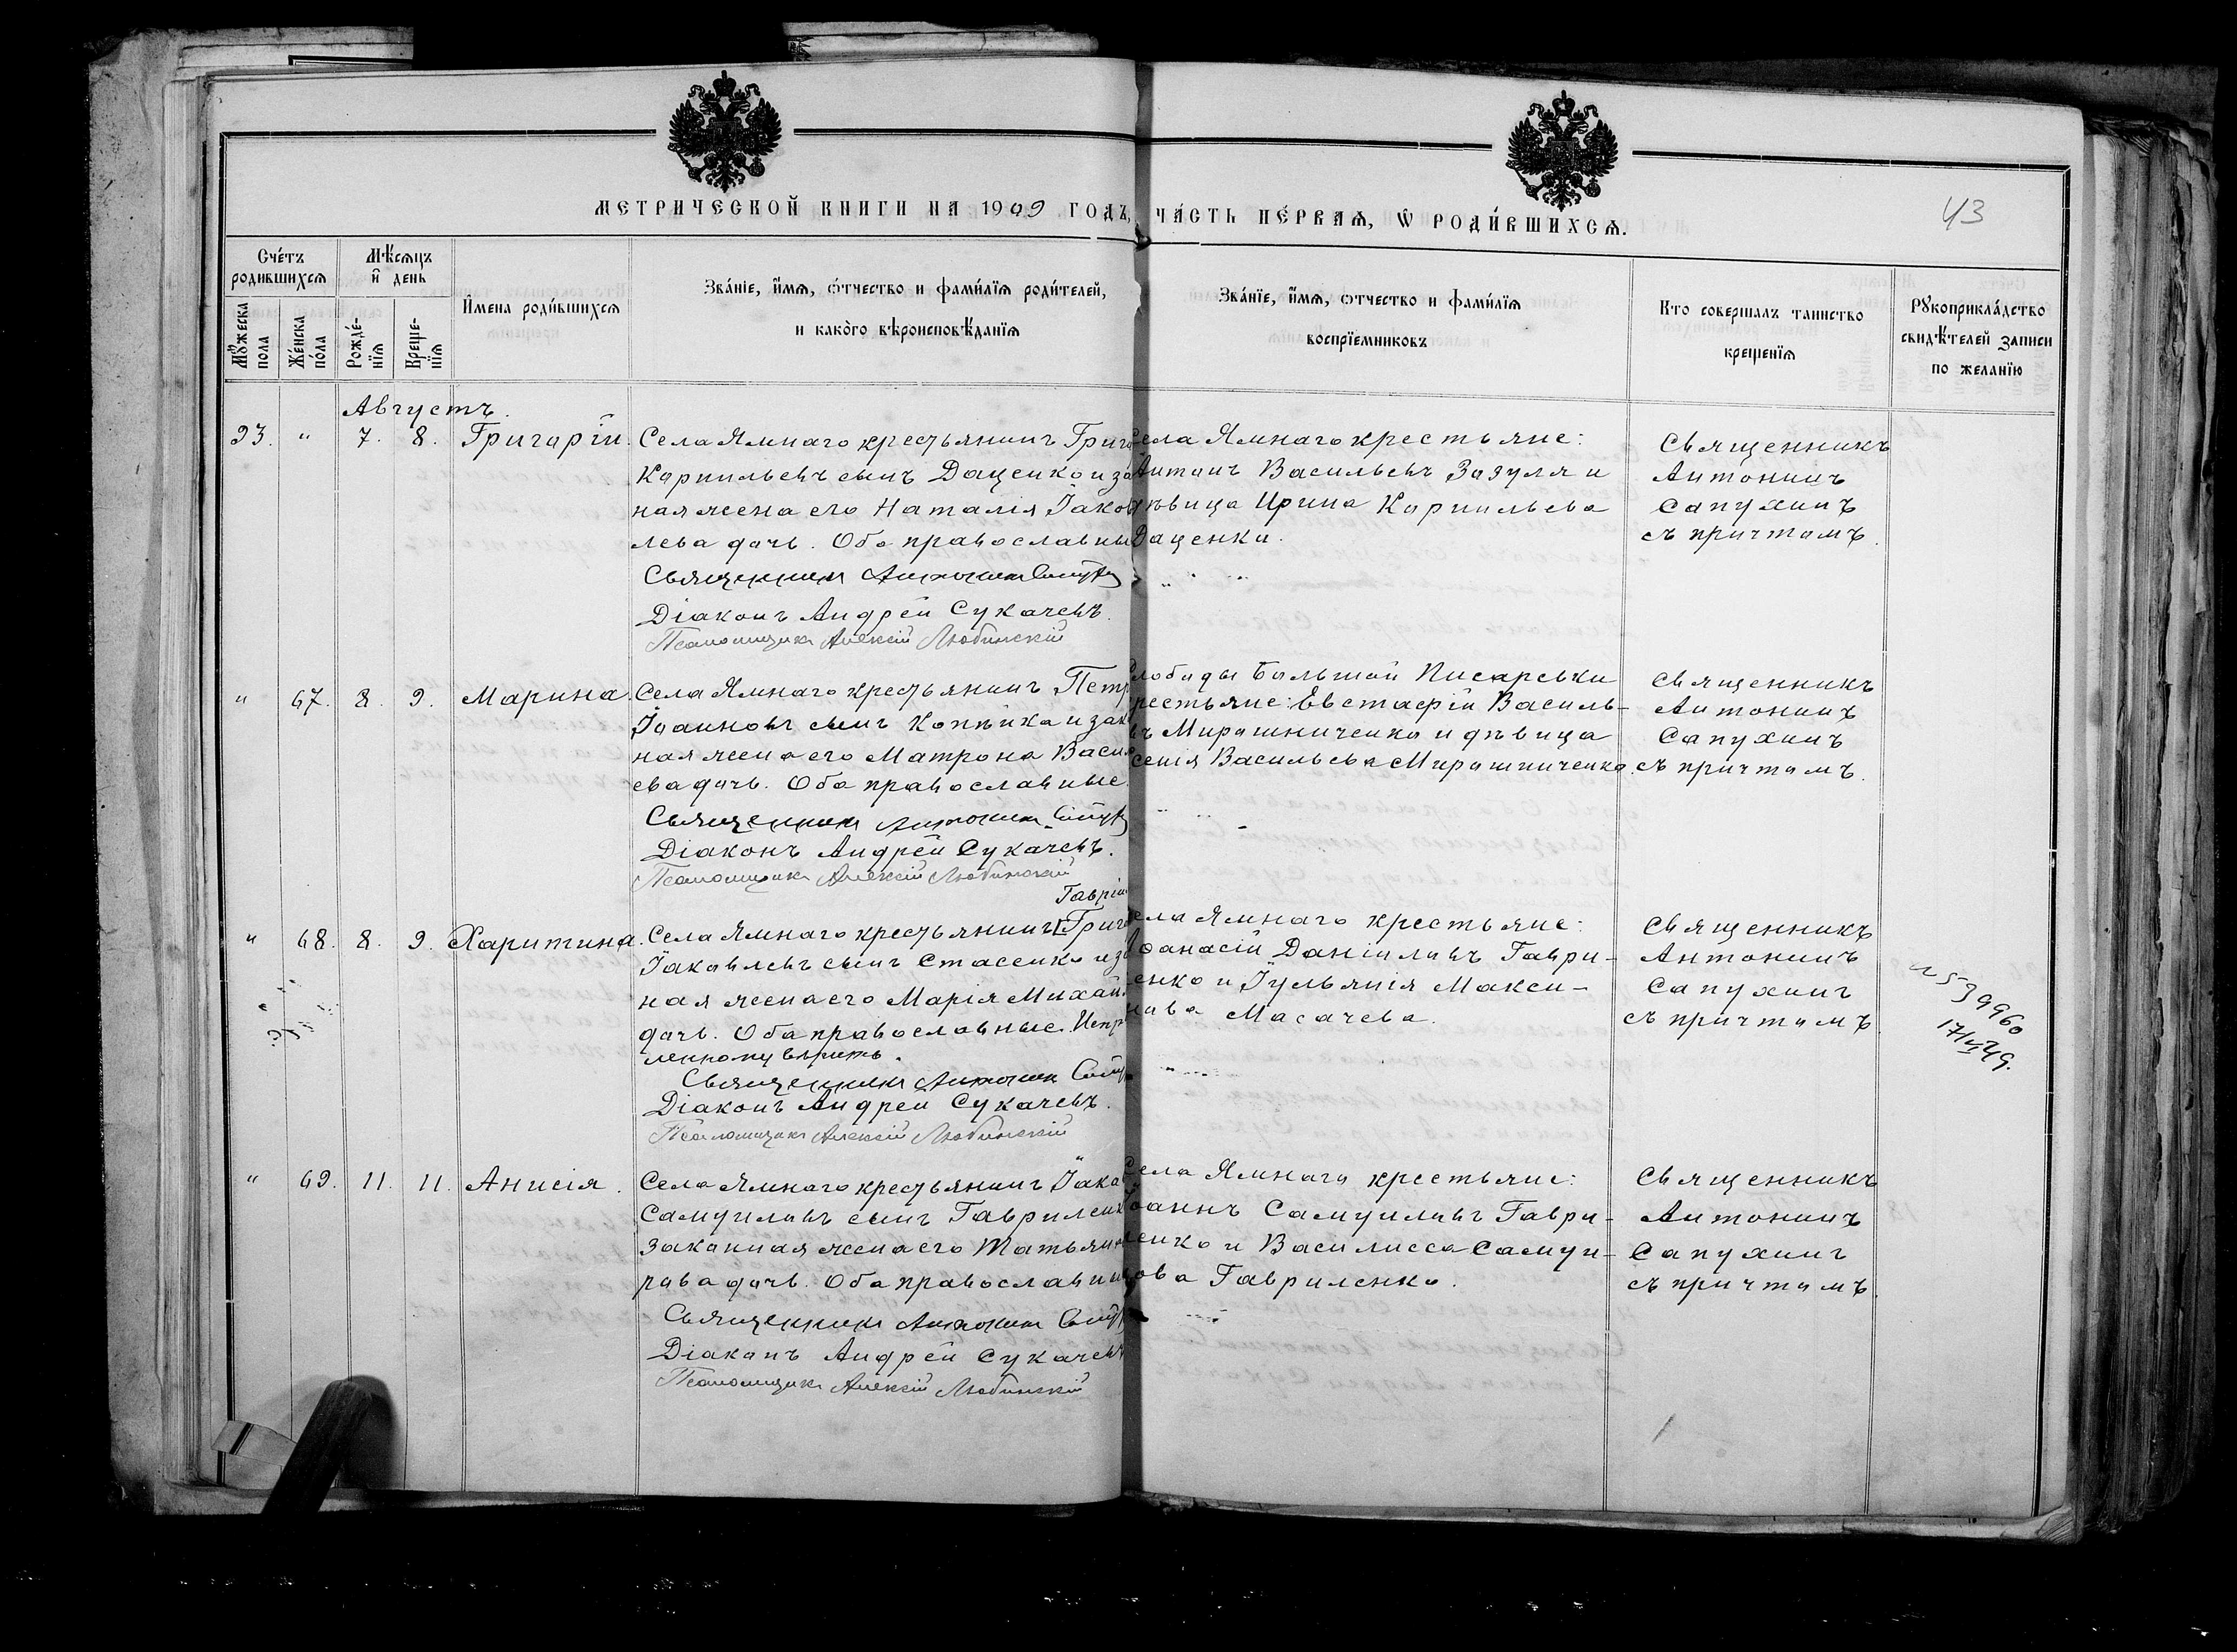 МЕТРИЧЕСКОЙ КНИГИ НА 1909 ГОДЪ, ЧА́СТЬ ПЕ́РВАѦ, Ѡ҆ РОДИ́ВШИХСѦ.
43
Сче́тъ родившихсѧ
Мꙋжеска пола
Же́нска по́ла
Мѣ́сѧцъ и҆ день
Рожде́-нїѧ
Креще-нїѧ
И҆мена роди́вшихсѧ
Зва́нїе, и҆́мѧ, ѻ҆́тчество и фами́лїѧ роди́телей,
и како̀го вѣроисповѣ́данїѧ
Зва́нїе, и҆́мѧ, ѻтчество и фами́лїѧ
воспрїемниковъ
Кто совершалъ таинство
крещенїѧ
Рꙋкоприкла́дство
свидѣ́телей записи
по желанїю
Августъ.
93. " 7. 8. Григорій.
Села Ямнаго крестьянинъ Григо
Корнильевъ сынъ Даценко и за
ная жена его Наталія Іаков
лева дочь. Оба православны
Священникъ Антонин
Діаконъ Андрей Сукачевъ.
Псаломщикъ Алексій Любинскій
Села Ямнаго крестьяне:
Антонъ Васильевъ Зозуля и
дѣвица Ирина Корнильева
Даценко.
Священникъ
Антонинъ
Сапухинъ
съ причтомъ.
" 67. 8. 9. Марина.
Села Ямнаго крестьянинъ Петр
Іоанновъ сынъ Копѣйка и зак
ная жена его Матрона Васил
ева дочь. Оба православные.
Священникъ Антонин
Діаконъ Андрей Сукачевъ.
Псаломщикъ Алексій Любинскій
Слободы Большой Писаревки
крестьяне: Евстафій Василь-
въ Мирошниченко и дѣвица
сенія Васильева Мирошниченко.
Священникъ
Антонинъ
Сапухинъ
съ причтомъ.
" 68. 8. 9. Харитина.
Гавріи
Села Ямнаго крестьянинъ [Григо
Іаковлевъ сынъ Стасенко и з
ная жена его Марія Михаи
дочь. Оба православные. Испр
ленному вѣрить.
Священникъ Антонин
Діаконъ Андрей Сукачевъ.
Псаломщикъ Алексій Любинскій
Села Ямнаго крестьяне:
Аѳанасій Даніиловъ Гаври-
енко и Іуліанія Макси-
мова Масачева.
Священникъ
Антонинъ
Сапухинъ
съ причтомъ.
№ 539960
" 69. 11. 11. Анисія.
Села Ямнаго крестьянинъ Іако
Самуиловъ сынъ Гавриленк
законная жена его Татьян
рова дочь. Оба православны
Священникъ Антонин
Діаконъ Андрей Сукачевъ
Псаломщикъ Алексій Любинскій
Села Ямнаго крестьяне:
Іоаннъ Самуиловъ Гаври-
ленко и Василисса Самуи-
лова Гавриленко.
Священникъ
Антонинъ
Сапухинъ
съ причтомъ.